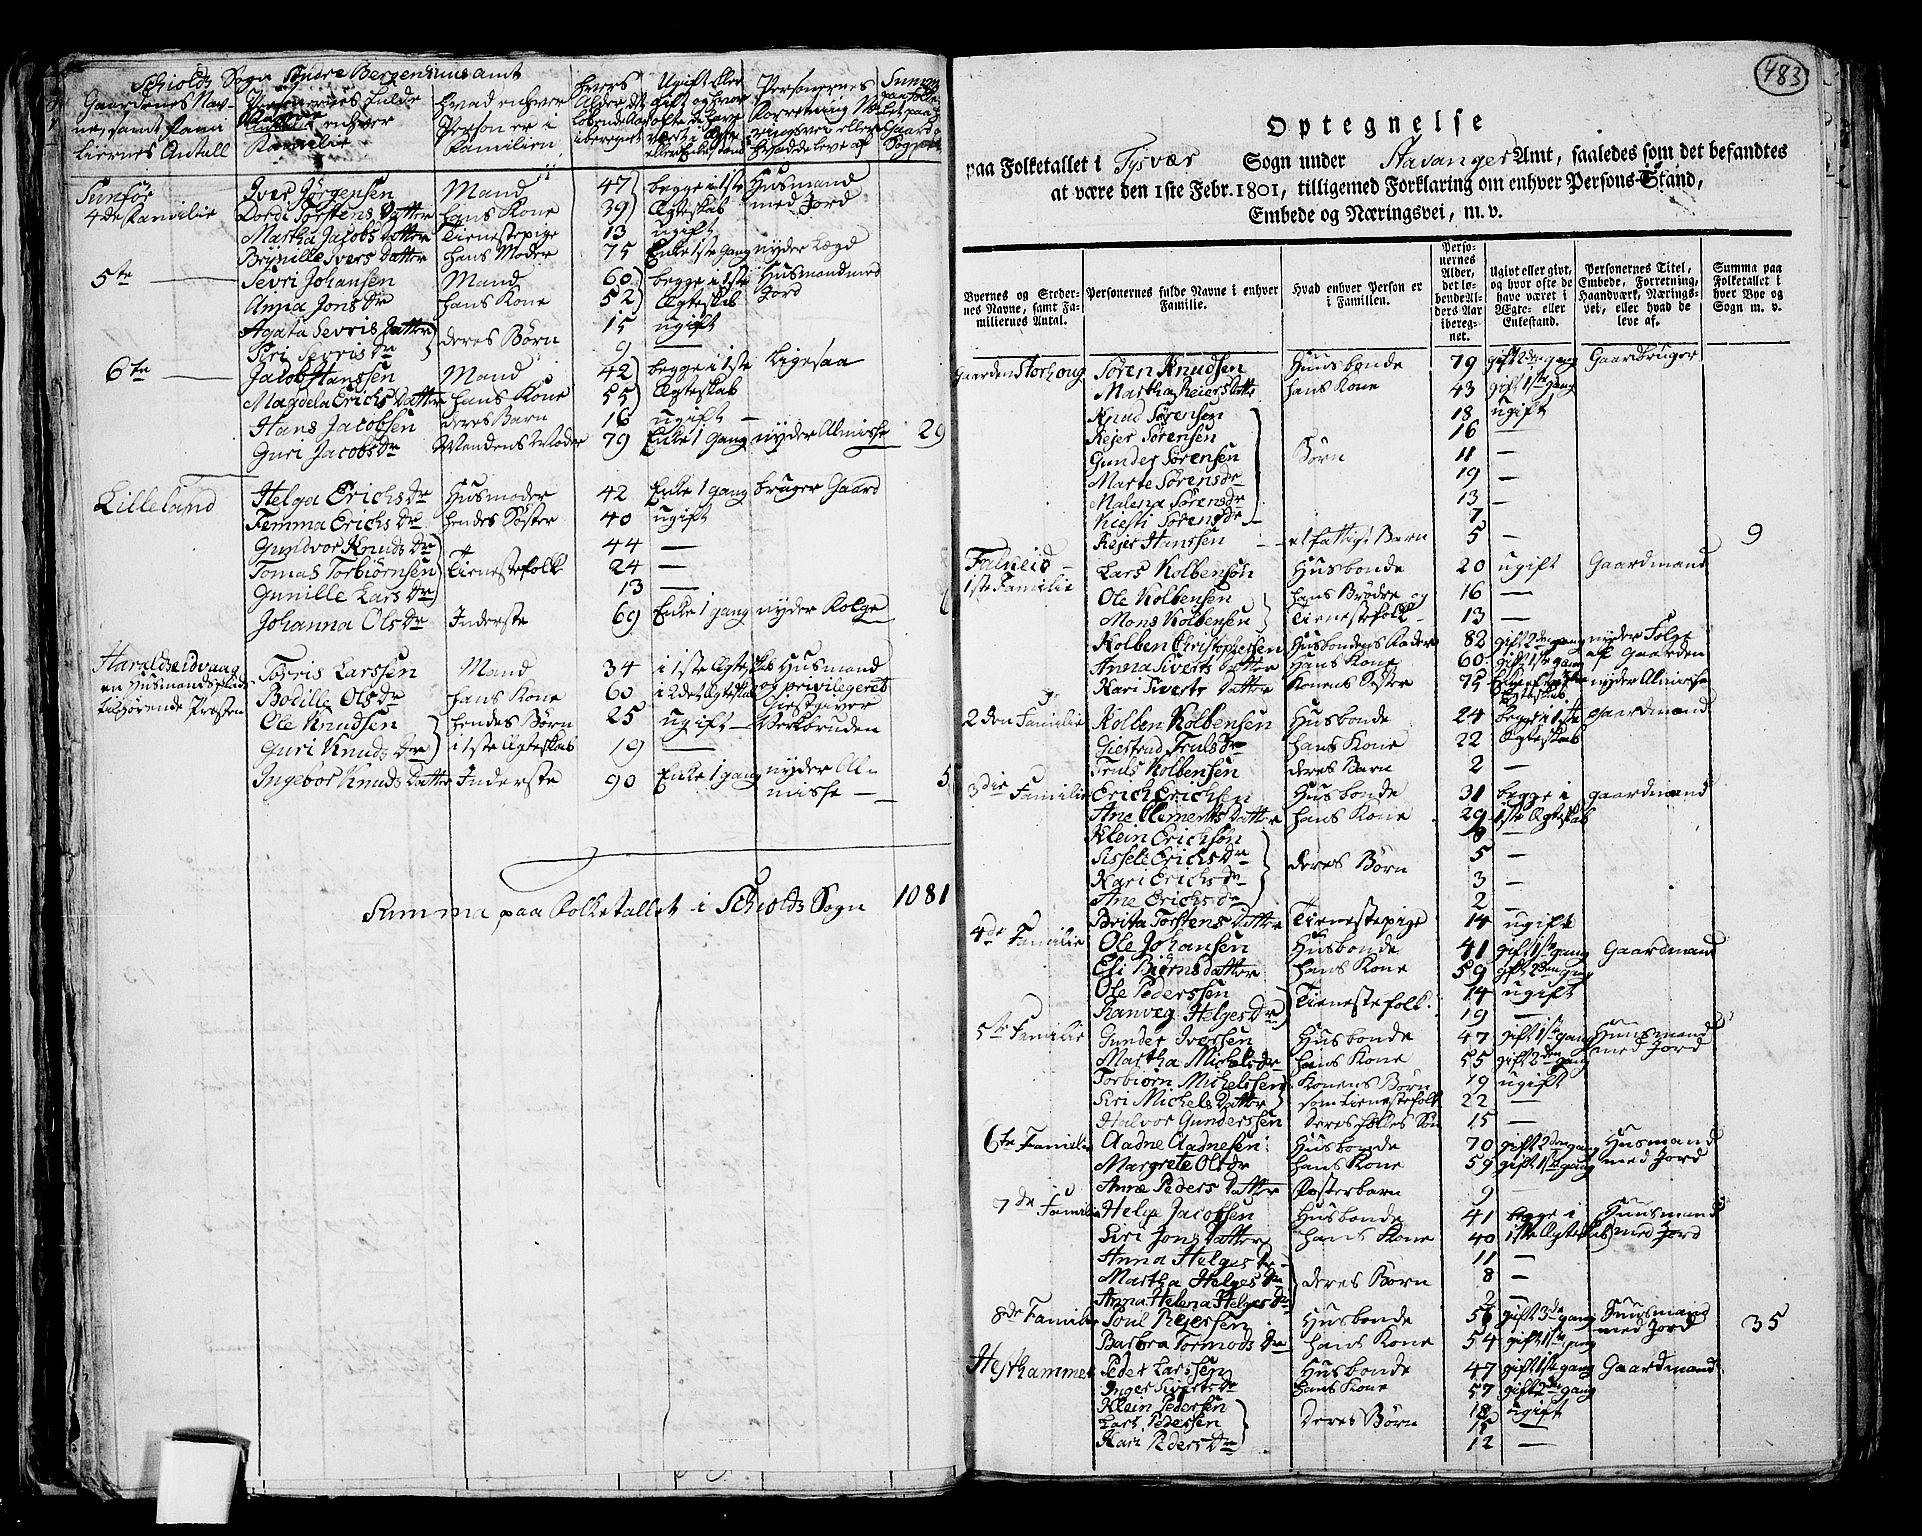 Schiolds Sogn Søndre Bergenhuus amt
Gaardenes Nav- Personernes fulde hvad enhver hvers Ugift eller Personernes Summa
ne, samt Fami Navne i enhver Person er i Alder det gift og hvor Forretning Næ- paa Folke
liernes Antall Familie Familien løbende Aar ofte de have ringsvei eller Gaard og
iberegnet vært i Ægte eller Enkestand hvad de leve af Sogn
Sunfør Iver Jørgensen Mand 47 begge i 1ste Husmand
4de Familie Dordi Torstens Datter hans Kone 39 Ægteskab med Jord
Martha Jacobs Datter Tienestepige 13 ugift
Brynille Ivers Datter hans Moder 75 Enke 1ste gang nyder Lægd
5te Sevri Johansen Mand 60 begge i 1ste Husmand med
Anna Jons Dr hans Kone 52 Ægteskab Jord
Agata Sevris Datter deres Børn 15 ugift
Siri Sevris Dr 9 —
6te Jacob Hanssen Mand 42 begge i 1ste Ligesaa
Magdela Erichs Datter hans Kone 55 Ægteskab
Hans Jacobsen deres Barn 16 ugift —
Guri Jacobs Dr Mandens Moder 79 Enke 1 gang nyder Almisse 29
Lilleland Helga Erichs Dr Husmoder 42 Enke 1 gang bruger Gaard
Femma Erichs Dr hendes Søster 40 ugift
Gundvor Knuds Dr 44 —
Tomas Torbiørnsen Tienestefolk 24 —
Gunille Lars Dr 13 —
Johanna Ols Dr Inderste 69 Enke 1 gang nyder Folge
Haraldseidvaag Torris Larssen Mand 34 i 1ste Ægteskab Husmand
en Husmandsplads Bodille Ols Dr hans Kone 60 i 2det Ægteskab og privilegeret
tilhørende Præsten Ole Knudsen hendes Børn 25 ugift — Giestgiver
Guri Knuds Dr i 1ste Ægteskab 19 —
Ingebor Knuds Datter Inderste 90 Enke 1 gang nyder Al- 5
misse —
Summa paa Folketallet i Schiolds Sogn 1081
483
Optegnelse
paa Folketallet i Tysvær Sogn under Stavanger Amt, saaledes som det befandtes
at være den 1ste Febr. 1801, tilligemed Forklaring om enhver Persons Stand,
Embede og Næringsvei, m. v.
Byernes og Stedernes Navne, samt Familiernes Antal. Personernes fulde Navne i enhver Familie. Hvad enhver Person er i Familien. Personernes Alder, det løbende Alders Aar iberegnet. Ugivt eller givt, og hvor ofte de have været i Ægte- eller Enkestand. Personernes Titel, Embede, Forretning, Haandværk, Næringsvei, eller hvad de leve af. Summa paa Folketallet i hver Bye og Sogn m. v.
Gaarden Storhoug Søren Knudsen Huusbonde 79 gift 2den gang Gaardbruger
Martha Reiers Datter hans Kone 43 gift 1ste gang
Knud Sørensen 18 ugift
Rejer Sørensen 16 —
Gunder Sørensen Børn 11 —
Marte Sørens Dr 19 —
Malena Sørens Dr 13 —
Kiersti Sørens Dr 7
Rejer Hanssen et fattigt Barn 5 — 9
Falheid Lars Kolbensøn Husbonde 20 ugift Gaardmand
1ste Familie Ole Kolbensen hans Brødre og 16 —
Mons Kolbensen Tienestefolk 13 —
Kolben Christophersen Husbondens Fader 82 gift 2den gang nyder Folge
Anna Siverts Datter hans Kone 60 gift 1ste gang af Gaarden
Kari Siverts Datter Konens Søster 75 nyder Almisse
2den Familie Kolben Kolbensen Husbonde 24 begge i 1ste Gaardmand
Giertrud Truls Dr hans Kone 22 Ægteskab
Truls Kolbensen deres Barn 2 —
3die Familie Erich Erichsen Husbonde 31 begge i Gaardmand
Ane Clements Datter hans Kone 29 1ste Ægteskab
Klein Erichsøn 8 —
Sisseli Erichs Dr deres Børn 5 —
Kari Erichs Dr 3 —
Ane Erichs Dr 2 —
Brita Torstens Datter Tienestepige 14 ugift
4de Familie Ole Johansen Husbonde 41 gift 1ste gang Gaardmand
Eli Biørns datter hans Kone 59 gift 2den gang
Ole Pederssen Tienestefolk 14 ugift
Ranveg Helges Dr 19 —
5te Familie Gunder Iverssen Husbonde 47 gift 1ste gang Huusmand
Martha Michels Dr hans Kone 55 gift 2den gang med Jord
Torbiørn Michelssen Konens Børn 19 ugift
Siri Michels Datter som tienestefolk 22 —
Halvor Gunderssen deres fælles Søn 15 —
6te Familie Aadne Aadnesen Husbonde 70 gift 2den gang Husmand
Margrete Ols Dr hans Kone 59 gift 1ste gang med Jord
Anne Peders Datter Fosterbarn 9 —
7de Familie Helje Jacobsen Husbonde 41 begge i Huusmand
Siri Jons Datter hans Kone 40 1ste Ægteskab med Jord
Anna Helges Dr 11 —
Martha Helges Dr deres Børn 8 —
Anna Helena Helges Dr 2 —
8de Familie Poul Rejerssen Husbonde 56 gift 3de gang Huusmand
Barbra Tormods Dr hans Kone 54 gift 1ste gang med Jord 35
Hesthammer Peder Larssen Husbonde 47 gift 1ste gang Gaardmand
Inger Siverts Dr hans Kone 57 gift 2den gang
Klein Pedersen 18 ugift
Lars Pedersen deres Børn 15 —
Kari Peders Dr 12 —